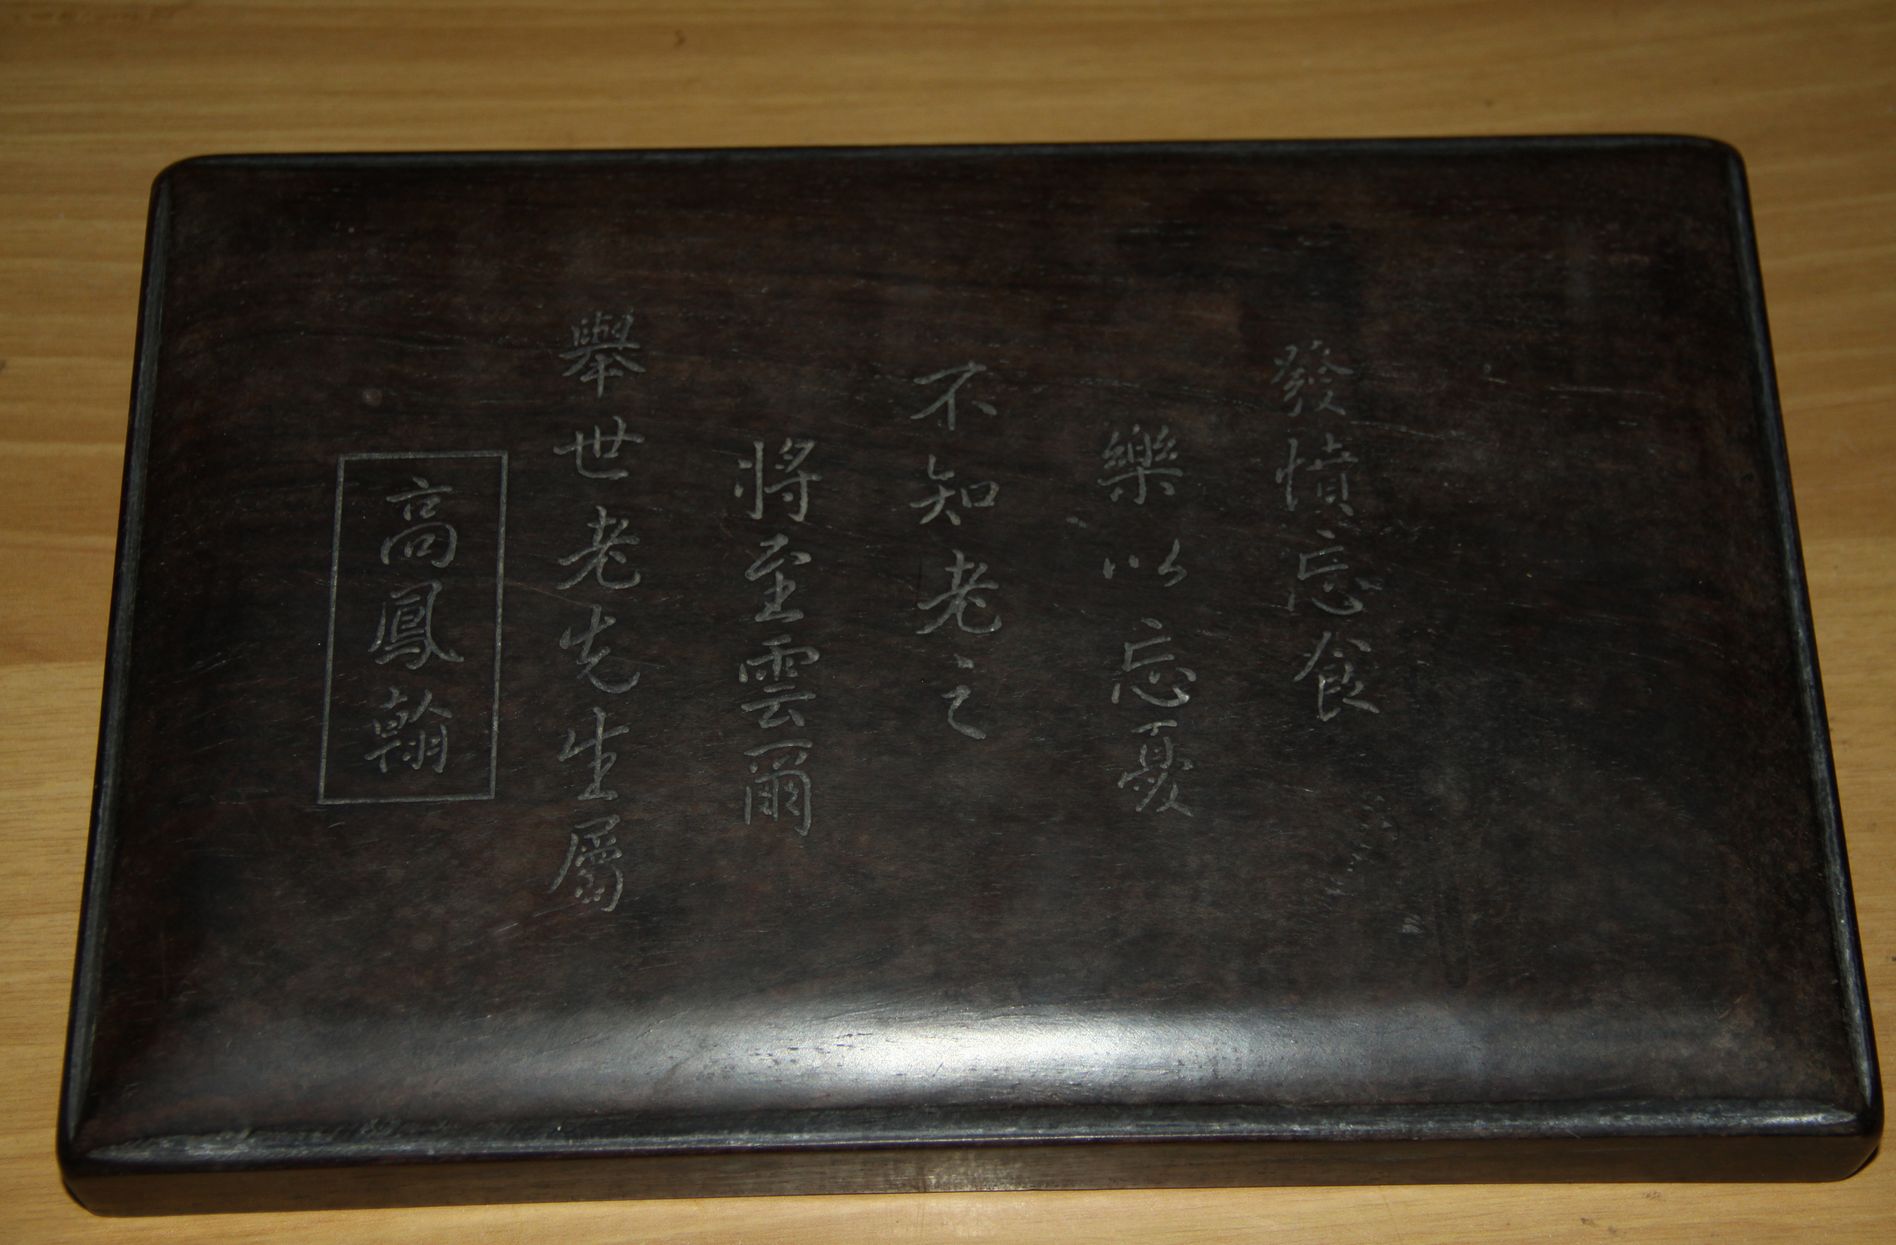 發憤忘食
樂以忘憂
不知老之
將至雲爾
舉世老先生屬
高鳳翰